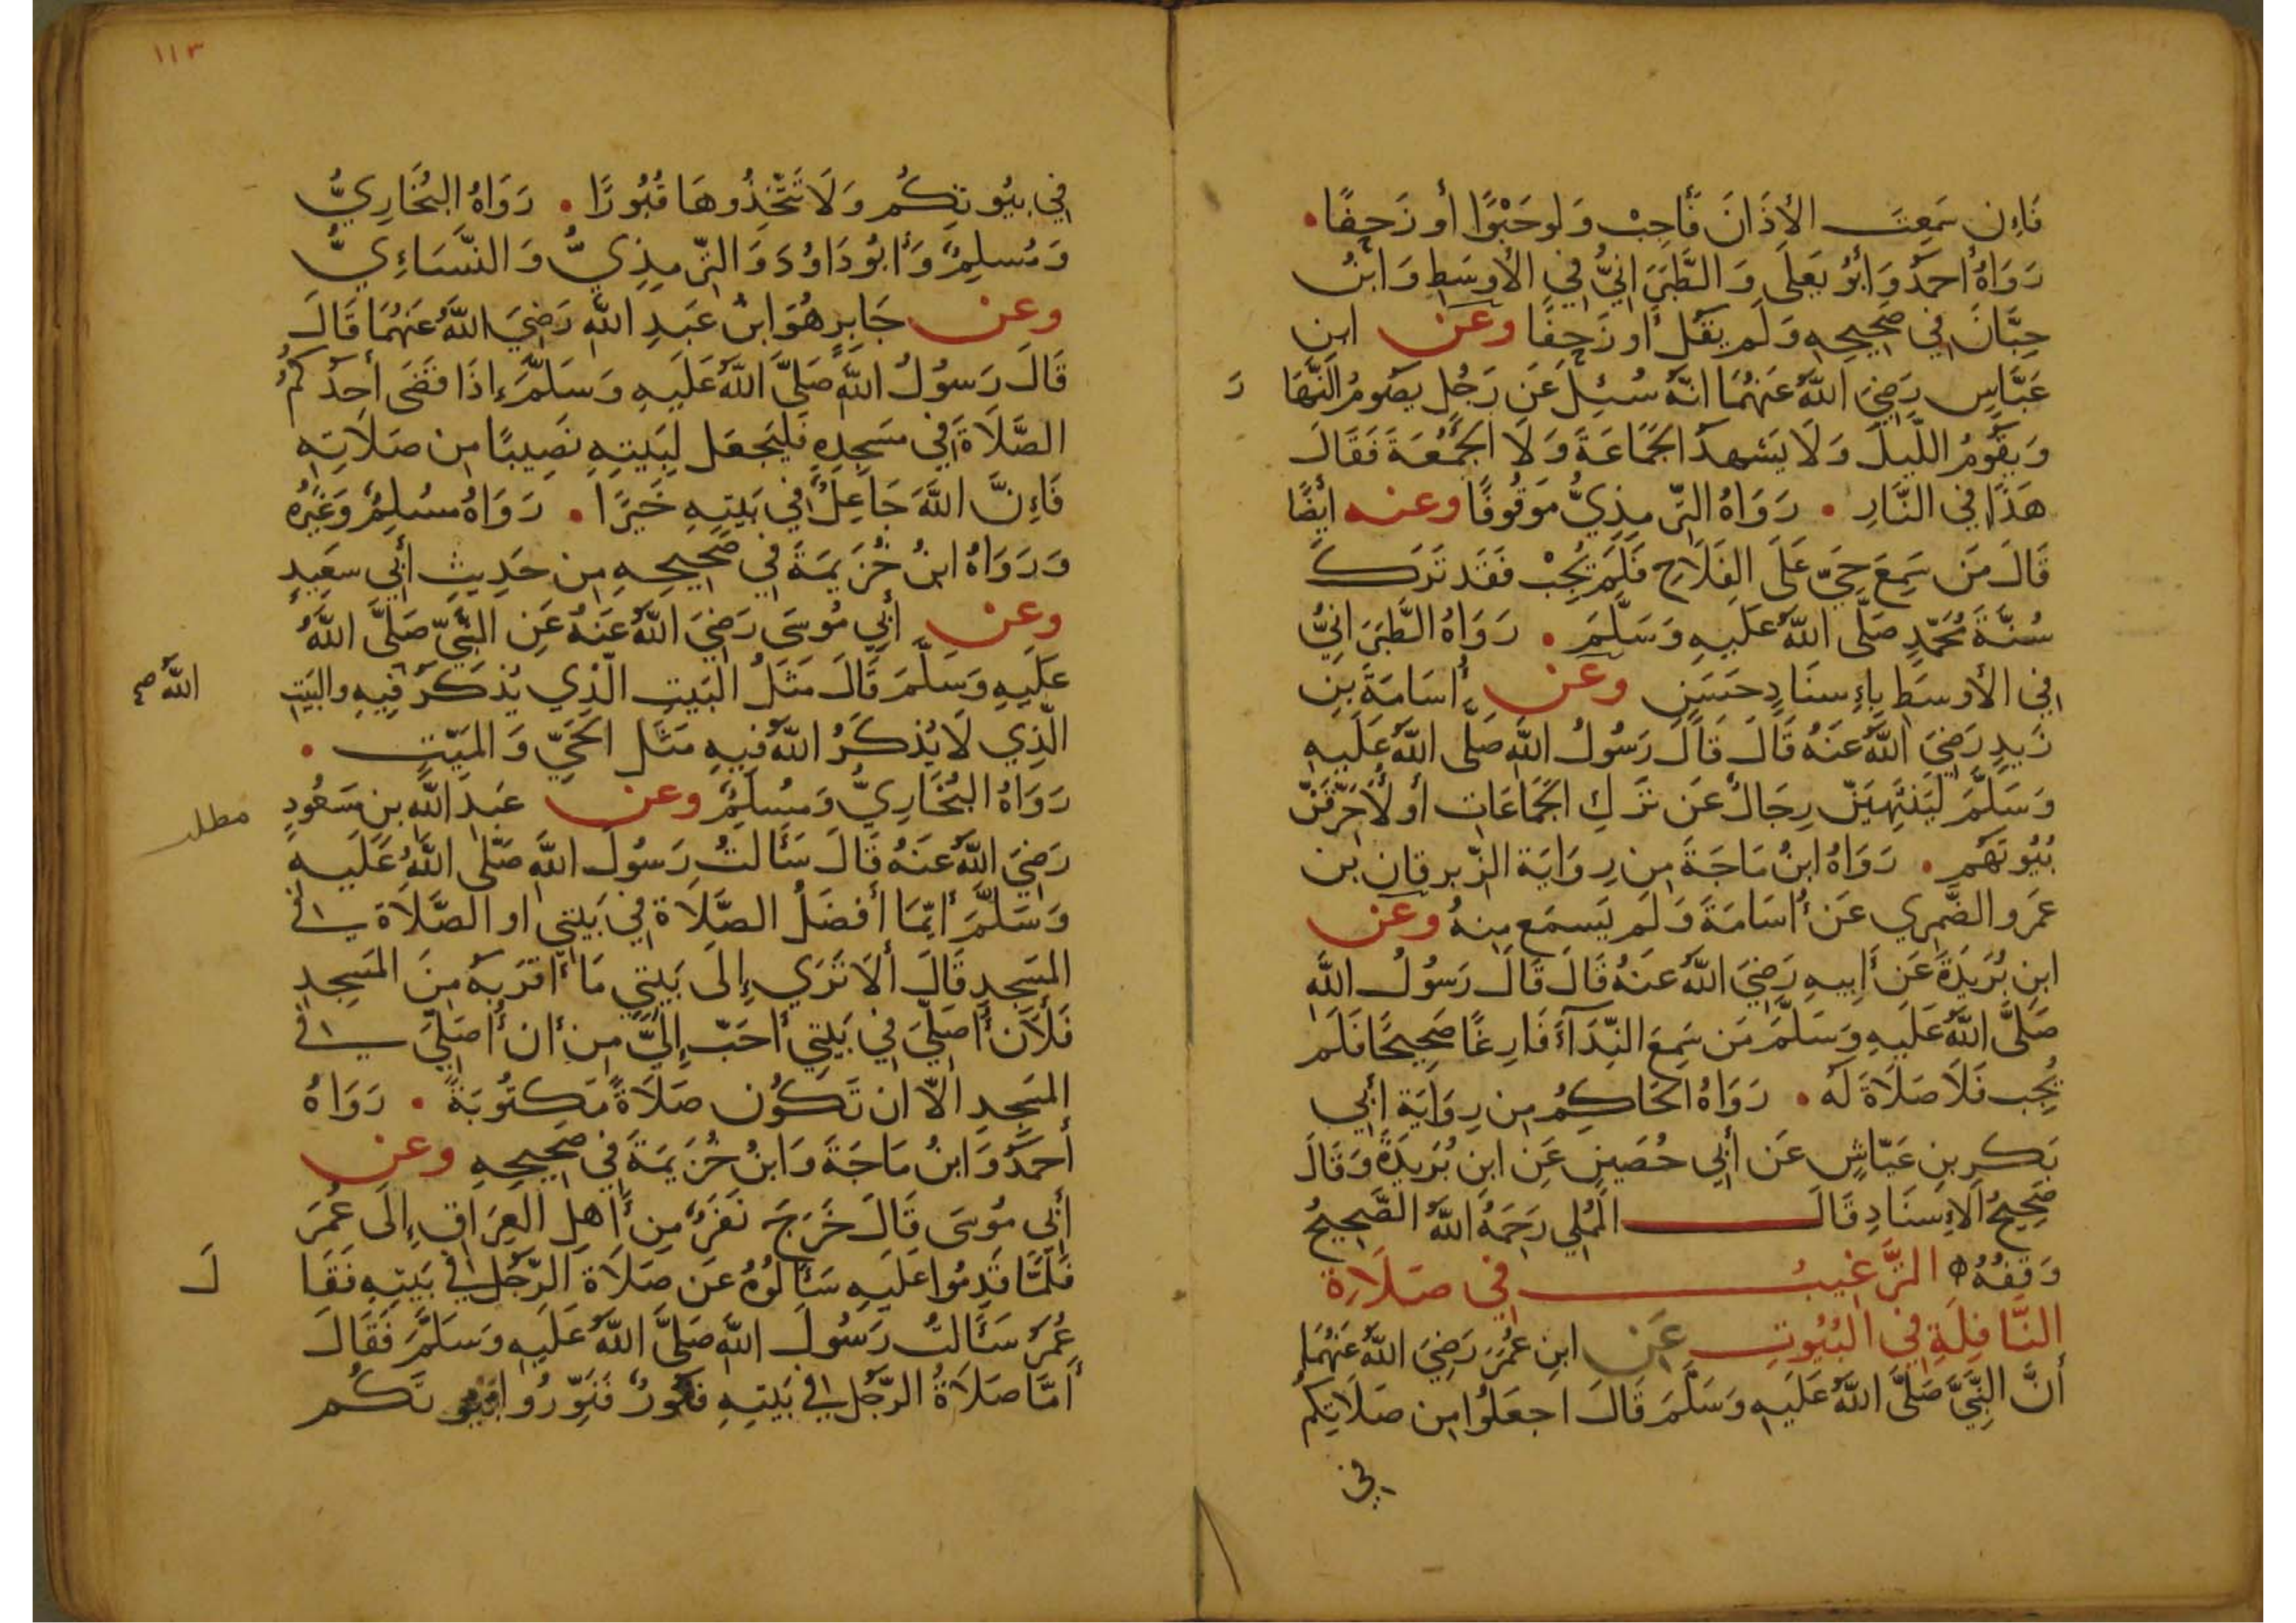 فَإِن سَمِعتَ الأَذَانَ فَأَجِبْ وَلَو حَبْوًا أَو زَحفًا
رَوَاهُ أَحمَدُ وَأَبُو يَعلَى وَالطَّبَرَانِيُّ فِي الأَوسَطِ وَابنُ
حِبَّانَ فِي صَحِيحِهِ وَلَم يَقُل أَو زَحفًا وعن ابن
عَبَّاسٍ رَضِيَ اللَّهُ عَنهُمَا أَنَّهُ سُئِلَ عَن رَجُلٍ يَصُومُ النَّهَا رَ
وَيَقُومُ اللَّيلَ وَلَا يَشهَدُ الجَمَاعَةَ وَلَا الجُمُعَةَ فَقَالَ
هَذَا فِي النَّارِ • رَوَاهُ التِّرمِذِيُّ مَوقُوفًا وعنه أَيضًا
قَالَ مَن سَمِعَ حَيَّ عَلَى الفَلَاحِ فَلَم يُجِبْ فَقَد تَرَكَ
سُنَّةَ مُحَمَّدٍ صَلَّى اللَّهُ عَلَيهِ وَسَلَّمَ • رَوَاهُ الطَّبَرَانِيُّ
فِي الأَوسَطِ بِإِسنَادٍ حَسَنٍ وعن أُسَامَةَ بنِ
زَيدٍ رَضِيَ اللَّهُ عَنهُ قَالَ قَالَ رَسُولُ اللَّهِ صَلَّى اللَّهُ عَلَيهِ
وَسَلَّمَ لَيَنتَهِيَنَّ رِجَالٌ عَن تَركِ الجَمَاعَاتِ أَو لَأُحَرِّقَنَّ
بُيُوتَهُم • رَوَاهُ ابنُ مَاجَةَ مِن رِوَايَةِ الزِّبرِقَانِ بنِ
عَمرٍو الضَّمرِي عَن أُسَامَةَ وَلَم يَسمَع مِنهُ وعن
ابنِ بُرَيدَةَ عَن أَبِيهِ رَضِيَ اللَّهُ عَنهُ قَالَ قَالَ رَسُولُ اللَّهِ
صَلَّى اللَّهُ عَلَيهِ وَسَلَّمَ مَن سَمِعَ النِّدَآءَ فَارِغًا صَحِيحًا فَلَم
يُجِب فَلَا صَلَاةَ لَهُ • رَوَاهُ الحَاكِمُ مِن رِوَايَةِ أَبِي
بَكرِ بنِ عَيَّاشٍ عَن أَبِي حُصَينٍ عَنِ ابنِ بُرَيدَةَ وَقَالَ
صَحِيحُ الإِسنَادِ قَالَ المُملِي رَحِمَهُ اللَّهُ الصَّحِيحُ
وَقفُهُ التَّرغِيبُ فِي صَلَاةِ
النَّافِلَةِ فِي البُيُوتِ عَنِ ابنِ عُمَرَ رَضِيَ اللَّهُ عَنهُمَا
أَنَّ النَّبِيَّ صَلَّى اللَّهُ عَلَيهِ وَسَلَّمَ قَالَ اجعَلُوا مِن صَلَاتِكُم
في
١١٣
فِي بُيُوتِكُم وَلَا تَتَّخِذُوهَا قُبُورًا • رَوَاهُ البُخَارِيُّ
وَمُسلِمٌ وَأَبُو دَاوُدَ وَالتِّرمِذِيُّ وَالنَّسَائِيُّ
وعن جَابِرٍ هُوَ ابنُ عَبدِ اللَّهِ رَضِيَ اللَّهُ عَنهُمَا قَالَ
قَالَ رَسُولُ اللَّهِ صَلَّى اللَّهُ عَلَيهِ وَسَلَّمَ إِذَا قَضَى أَحَدُكُمُ
الصَّلَاةَ فِي مَسجِدِهِ فَليَجعَل لِبَيتِهِ نَصِيبًا مِن صَلَاتِهِ
فَإِنَّ اللَّهَ جَاعِلٌ فِي بَيتِهِ خَيرًا • رَوَاهُ مُسلِمٌ وَغَيرُهُ
وَرَوَاهُ ابنُ خُزَيمَةَ فِي صَحِيحِهِ مِن حَدِيثِ أَبِي سَعِيدٍ
وعن أَبِي مُوسَى رَضِيَ اللَّهُ عَنهُ عَنِ النَّبِيِّ صَلَّى اللَّهُ
عَلَيهِ وَسَلَّمَ قَالَ مَثَلُ البَيتِ الَّذِي يُذكَرُ فِيهِ والبَيتِ
اللَّهُ صح
الَّذِي لَا يُذكَرُ اللَّهُ فِيهِ مَثَلُ الحَيِّ وَالمَيِّتِ •
رَوَاهُ البُخَارِيُّ وَمُسلِمٌ وعن عَبدِ اللَّهِ بنِ مَسعُودٍ
مطلب
رَضِيَ اللَّهُ عَنهُ قَالَ سَأَلتُ رَسُولَ اللَّهِ صَلَّى اللَّهُ عَلَيهِ
وَسَلَّمَ أَيُّمَا أَفضَلُ الصَّلَاةُ فِي بَيتِي أو الصَّلَاةُ فِي
المَسجِدِ قَالَ أَلَا تَرَى إِلَى بَيتِي مَا أَقرَبَهُ مِنَ المَسجِدِ
فَلَأَن أُصَلِّيَ فِي بَيتِي أَحَبُّ إِلَيَّ مِن أَن أُصَلِّيَ فِي
المَسجِدِ إلَّا ان تَكُونَ صَلَاةً مَكتُوبَةً • رَوَاهُ
أَحمَدُ وَابنُ مَاجَةَ وَابنُ خُزَيمَةَ فِي صَحِيحِهِ وعن
أَبِي مُوسَى قَالَ خَرَجَ نَفَرٌ مِن أَهلِ العِرَاقِ إِلَى عُمَرَ
فَلَمَّا قَدِمُوا عَلَيهِ سَأَلُوهُ عَن صَلَاةِ الرَّجُلِ فِي بَيتِهِ فَقَا لَ
عُمَرُ سَأَلتُ رَسُولَ اللَّهِ صَلَّى اللَّهُ عَلَيهِ وَسَلَّمَ فَقَالَ
أَمَّا صَلَاةُ الرَّجُلِ فِي بَيتِهِ فَنُورٌ فَنَوِّرُوا بُيُوتَكُم